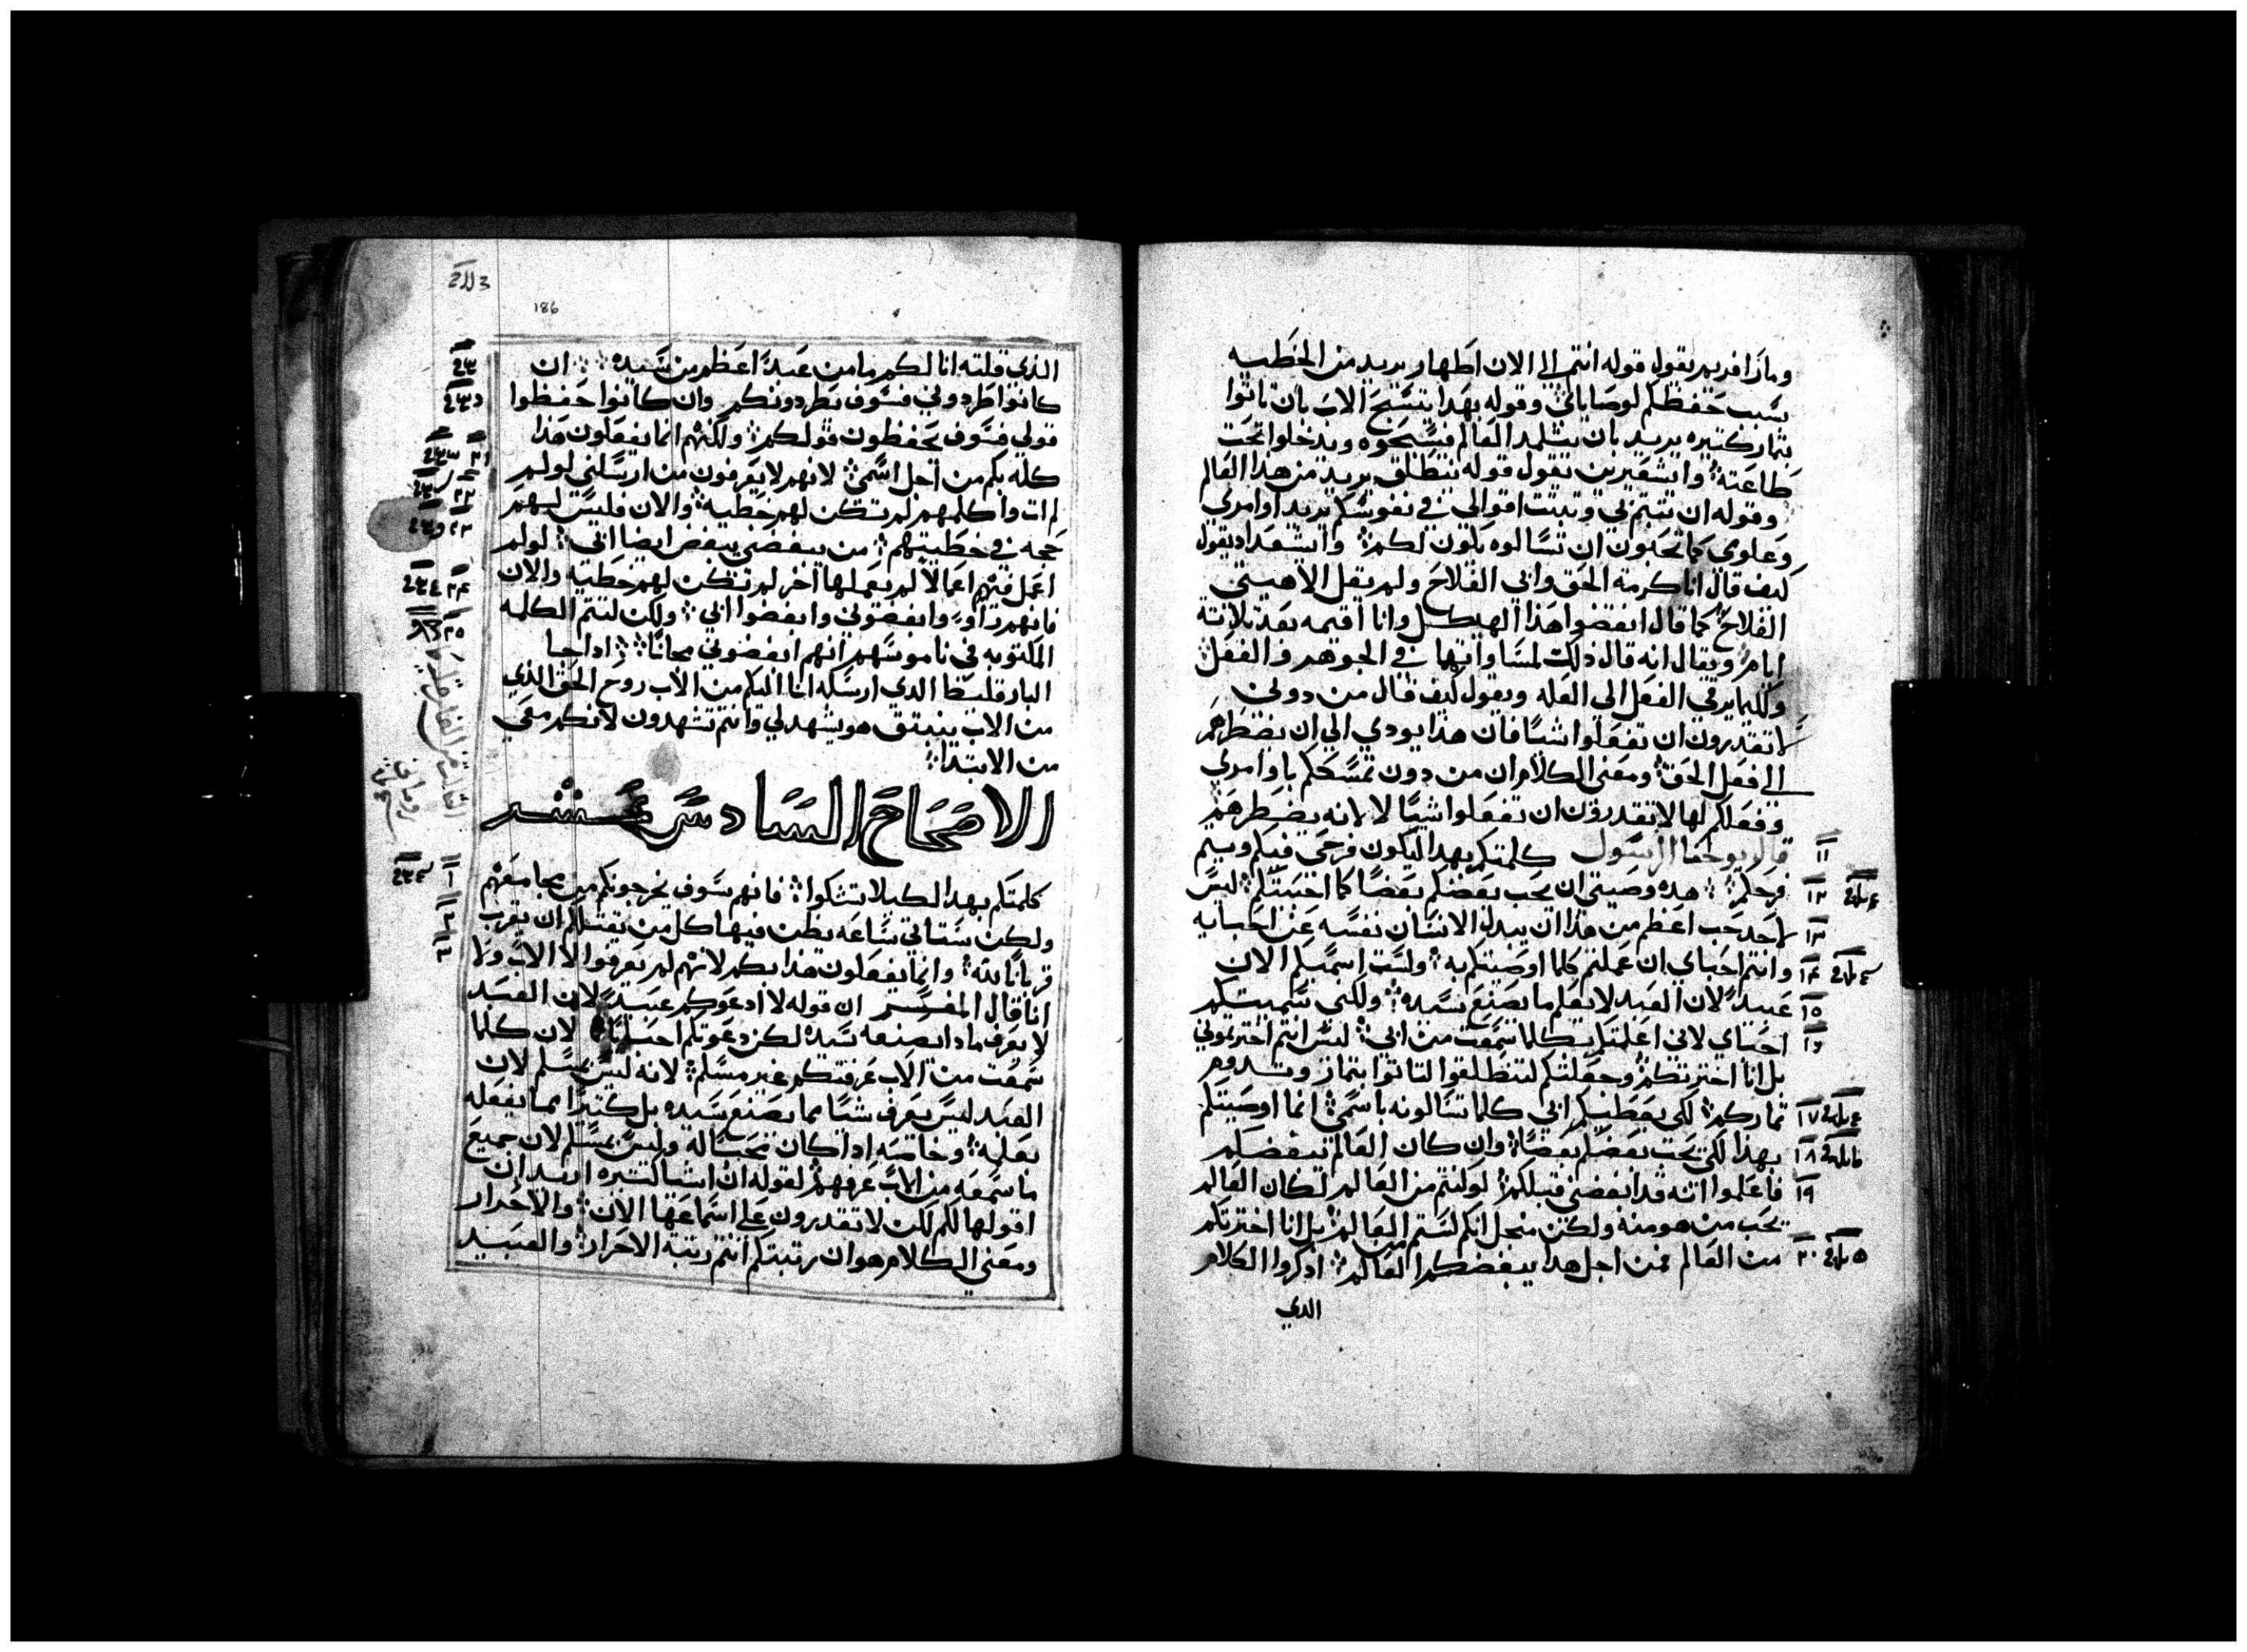 ومارافريم يقول قوله انتم الان اطهار يريد من الخطيه
بسبب حفظكم لوصاياي وقوله بهدا يتسبح الاب بان تاتوا
بثمار كتيره يريد بان يتلمد العالم فيسبحوه ويدخلوا تحت
طاعته وايشقيرين يقول قوله ننطلق يريد من هدا العالم
وقوله ان تتبتم في وتبتت اقوالي في نفوسكم يريد اوامري
وعلومي كما تحبون ان تسالوه يكون لكم وايشعداد يقول
كيف قال انا كرمة الحق وابي الفلاح ولم يقل الاهيتي
الفلاح كما قال انقضوا هذا الهيكل وانا اقيمه بعد تلاتة
ايام ويقال انه قال دلك لمساواتهما في الجوهر والفعل
وكليما يرقي الفعل الى العله ويقول كيف قال من دوني
لا تقدرون ان تفعلوا شيا فان هدا يودي الي ان يضطرهم
الي فعل الحق ومعني الكلام ان من دون تمسككم باوامري
وفعلكم لها لا تقدرون ان تفعلوا شيا لا لانه يضطرهم
١١ قال يوحنا الرسول كلمتكم بهدا ليكون فرحي فيكم ويتم
١٢ فرحكم هده وصيتي ان يحب بعضكم بعضا كما احببتكم ليس
١٣ لاحد حب اعظم من هدا ان يبدل الانسان نفسه عن احبايه
١٤ وانتم احباي ان عملتم كلما اوصيتكم به ولست اسميكم الان
١٥ عبيد لان العبد لا يعلم ما يصنع سيده ولكني سميتكم
١٦ احباي لاني اعلمتكم بكلما سمعت من ابي ليس انتم اخترتموني
بل انا اخترتكم وجعلتكم لتنطلقوا لتاتوا بتمار وتدوم
١٧ تماركم لكي يعطيكم ابي كلما تسالونه باسمي انما اوصيتكم
١٨ بهذا لكي يحب بعضكم بعضا وان كان العالم يبغضكم
١٩ فاعلموا انه قد ابغضني قبلكم لو كنتم من العالم لكان العالم
يحب من هو منه ولكن من اجل انكم لستم من العالم بل انا اخترتكم
٢٠ من العالم فمن اجل هدا يبغضكم العالم ادكروا الكلام
الدي
186
الذي قلته انا لكم ما من عبد اعظم من سيده ان
كانوا طردوني فسوف يطردونكم وان كانوا حفظوا
قولي فسوف يحفظون قولكم ولكنهم انما يفعلون هذا
كله بكم من اجل اسمي لانهم لا يعرفون من ارسلني لو لم
ات واكلمهم لم تكن لهم خطيه والان فليس لهم
حجه في خطيتهم من يبغضني يبغض ايضا ابي لو لم
اعمل فيهم اعمالا لم يعملها اخر لم تكن لهم خطيه والان
فانهم راوا وابغضوني وابغضوا ابي ولكن لتتم الكلمه
المكتوبه في ناموسهم انهم ابغضوني مجانا ادا جا
البارقليط الدي ارسله انا اليكم من الاب روح الحق الذي
من الاب ينبتق هو يشهد لي وانتم تشهدون لانكم معي
من الابتدا
الاصحاح السادس عشر
كلمتكم بهدا لكيلا تشكوا فانهم سوف يخرجونكم من مجامعهم
ولكن ستاتي ساعه يظن فيها كل من يقتلكم ان يقرب
قربانا لله وانما يفعلون هذا بكم لانهم لم يعرفوا لا الاب ولا
انا قال المفسر ان قوله لا ادعوكم عبيد لان العبد
لا يعرف مادا يصنعه سيده لكن دعوتكم احبايي لان كلما
سمعت من الاب عرفتكم غير مسلم لانه ليس بمسلم لان
العبد ليس يعرف شيا مما يصنع سيده بل كتيرا مما يفعله
بعلمه وخاصه ادا كان محبا له وليس بمسلم لان جميع
ما سمعه من الاب عرفهم لقوله ان اشيا كتيره اريد ان
اقولها لكم لكن لا تقدرون علي استماعها الان والاحرار
ومعني الكلام هو ان رتبتكم انتم رتبة الاحرار والعبيد